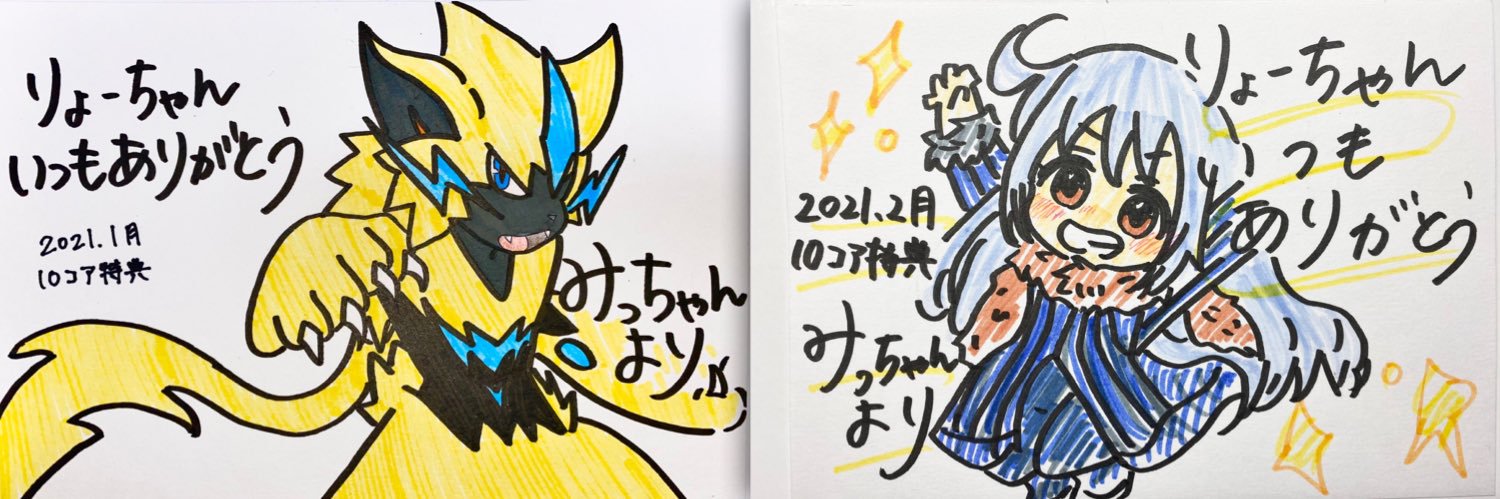 りょーちゃん
いつもありがとう
2021.1月
10コア特典
みっちゃん
より
りょーちゃん
いつも
ありがとう
2021.2月
10コア特典
みっちゃん
より